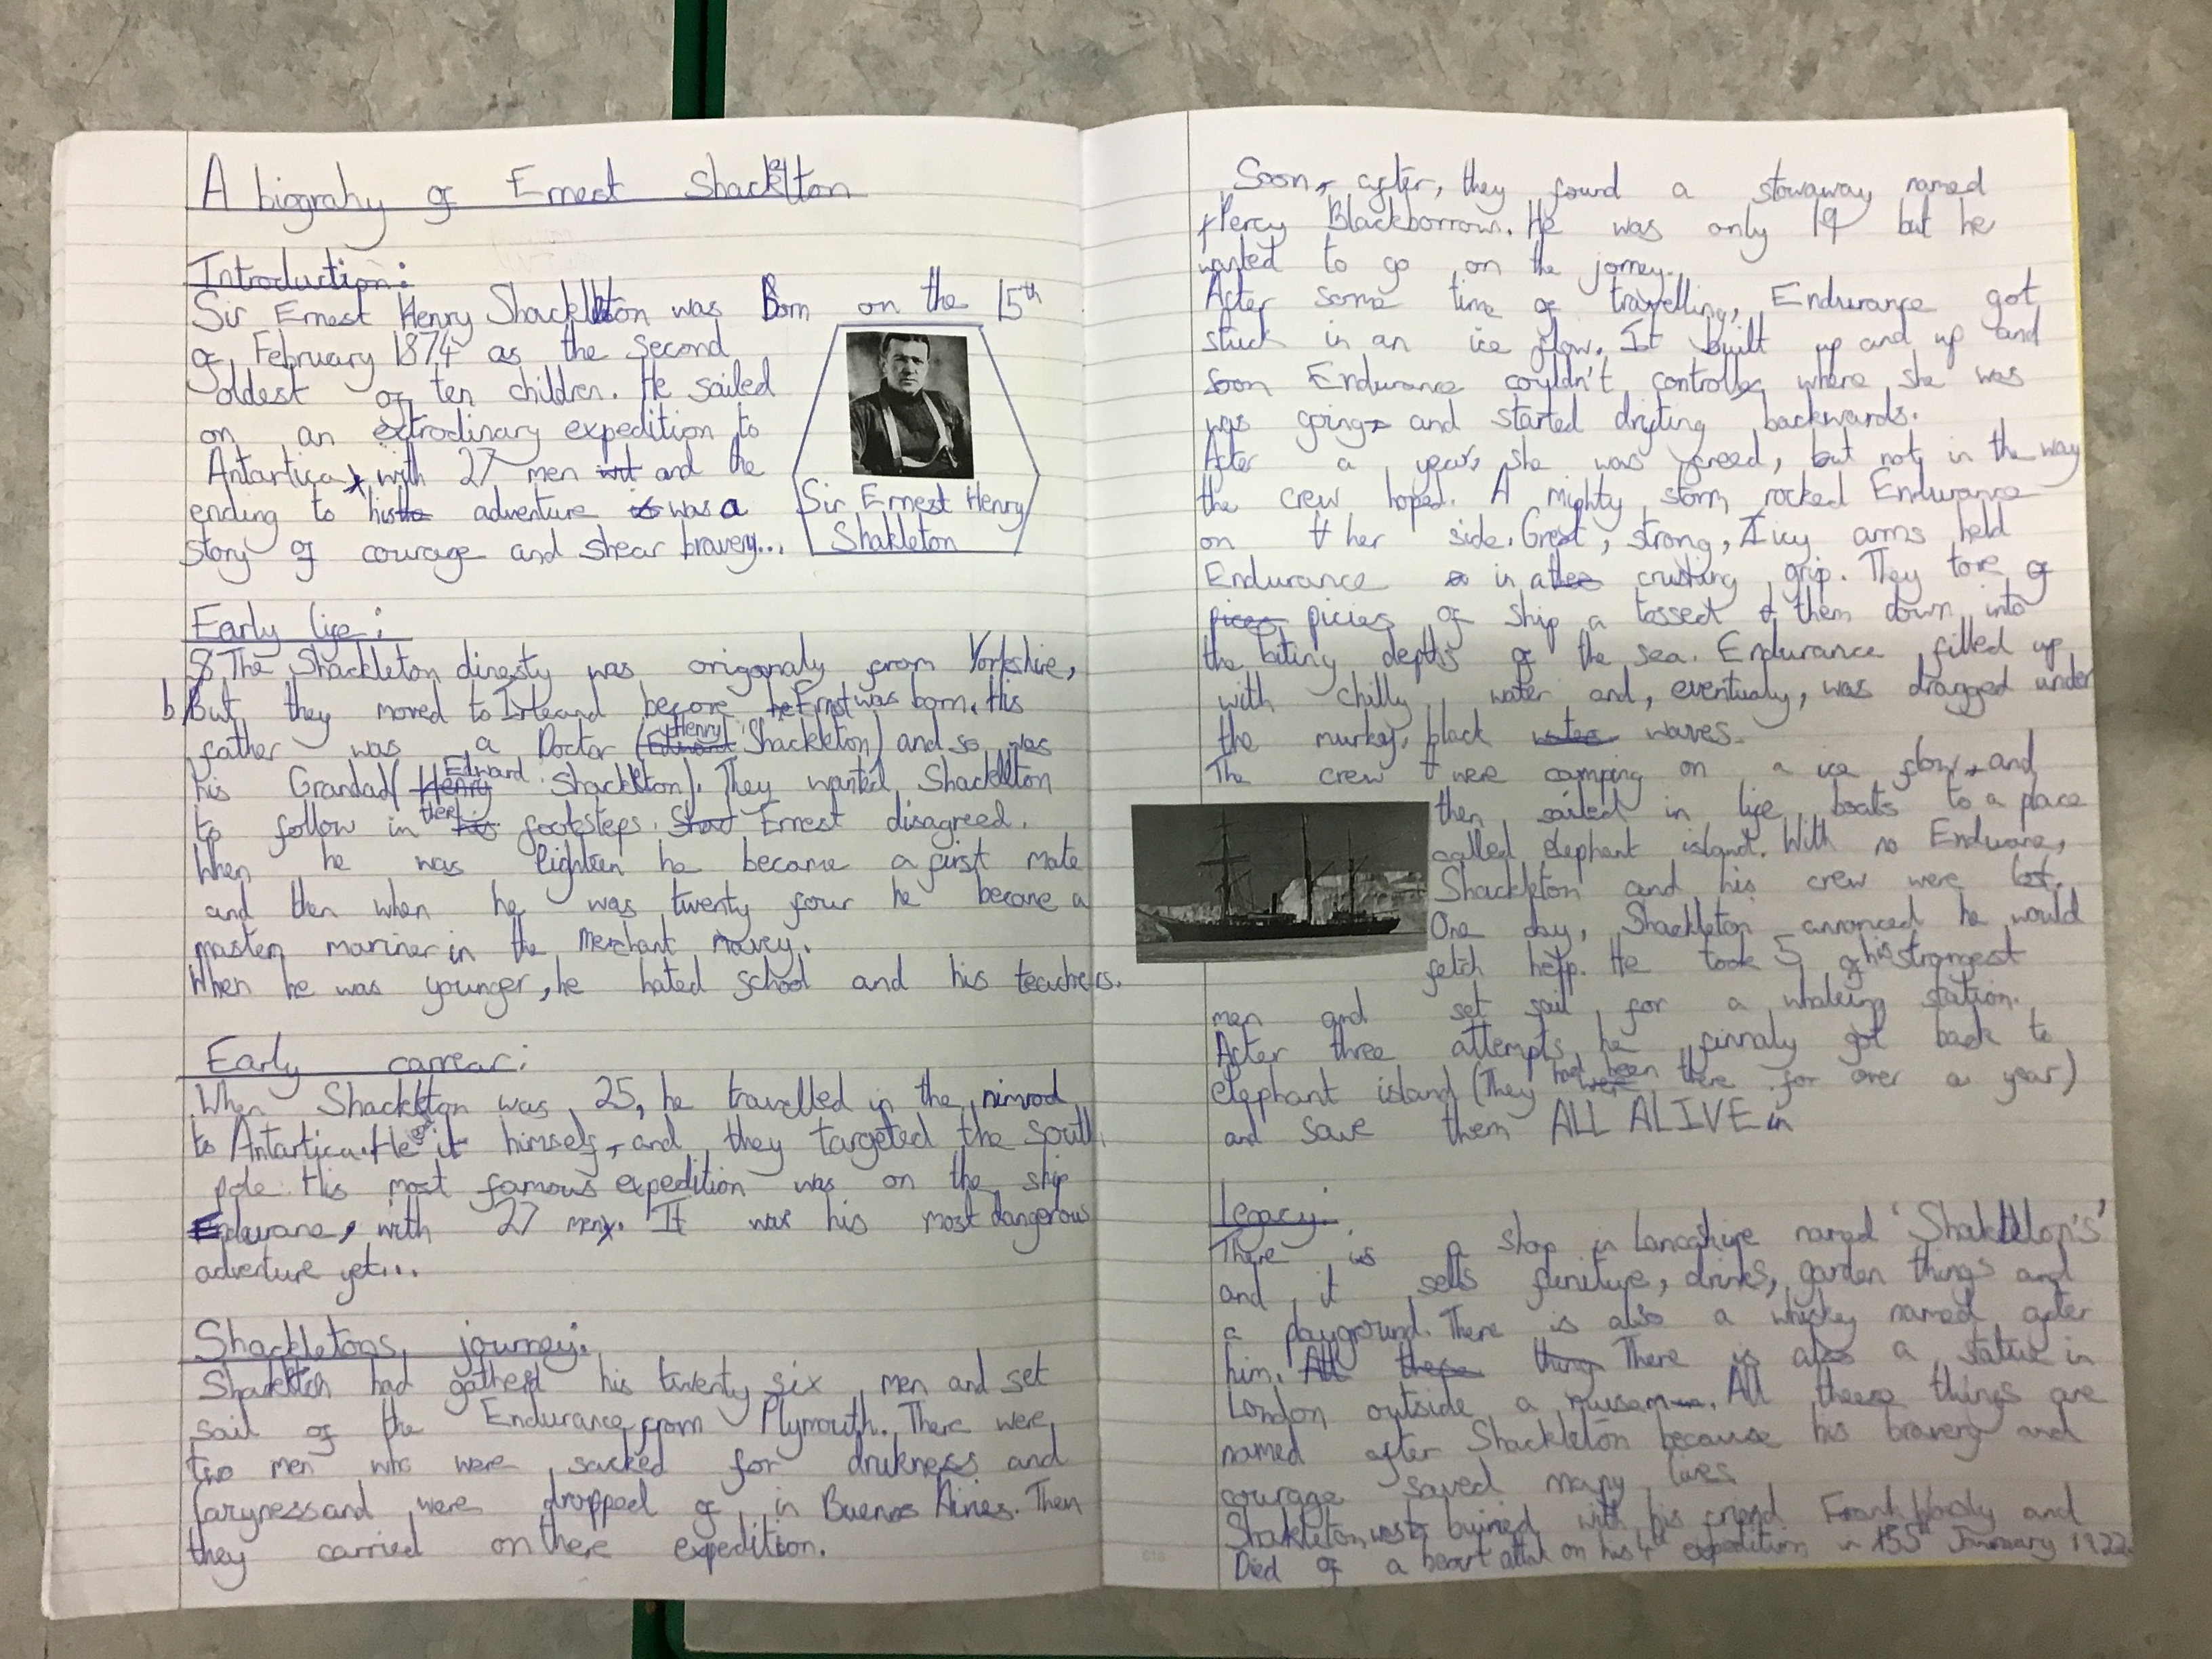 A biograhy of Ernest Shackleton
Introduction:
Sir Ernest Henry Shackleton was Born on the 15th
of February 1874 as the second
oldest of ten children. He sailed
on an extrodinary expedition to
Antartica with 27 men and the
ending to his adventure was a
story of courage and shear bravery...
Sir Ernest Henry
Shakleton
Early life:
The Shackleton dinesty was origonaly from Yorkshire,
but they moved to Irleand before Ernst was born. His
father was a Doctor (Henry Shackleton) and so was
his Grandad (Edward Shackleton). They wanted Shackleton
to follow in their footsteps. Ernest disagreed.
When he was Eighteen he became a first mate
and then when he was twenty four he became a
master mariner in the Merchant Navey.
When he was younger, he hated school and his teachers.
Early carrear:
When Shackleton was 25, he travelled in the nimrod
to Antartica. He it himself, and they targeted the south
pole. His most famous expedition was on the ship
Endurane, with 27 men. It was his most dangerous
adventure yet...
Shackletons journey:
Shackleton had gatherd his twenty six men and set
sail of the Endurance from Plymouth. There were
two men who were sacked for drukness and
laryness and were dropped of in Buenos Airies. Then
they carried on there expedition.
Soon after, they found a stowaway named
Percy Blackborrow. He was only 19 but he
wanted to go on the jorney.
After some time of travelling, Endurance got
stuck in an ice flow. It built up and up and
soon Endurance couldn't controlle where she was
was going and started drifting backwards.
After a year, she was freed, but not in the way
the crew hoped. A mighty storm rocked Endurance
on her side. Great, strong, icy arms held
Endurance in a crushing grip. They tore of
picies of ship a tossed them down into
the bitiny depths of the sea. Endurance filled up
with chilly water and, eventualy, was dragged under
the murkey, black waves.
The crew were camping on a ice flow, and
then sailed in life boats to a place
called elephant island. With no Endurane,
Shackleton and his crew were lost.
One day, Shackleton annonced he would
fetch help. He took 5 of his strongest
men and set sail for a whaleing station.
After three attempts, he finnaly got back to
elephant island (They had been there for over a year)
and save them ALL ALIVE in
Legacy:
There is a shop in Lancashire named 'Shakleton's'
and it sells funiture, drinks, garden things and
a playground. There is also a whiskey named after
him. There is also a statue in
London outside a museam. All these things are
named after Shackleton because his bravery and
courage saved many lives
Shakleton was buiried with his friend Frank and
Died of a heart attak on his 4th expedition in January 1922.